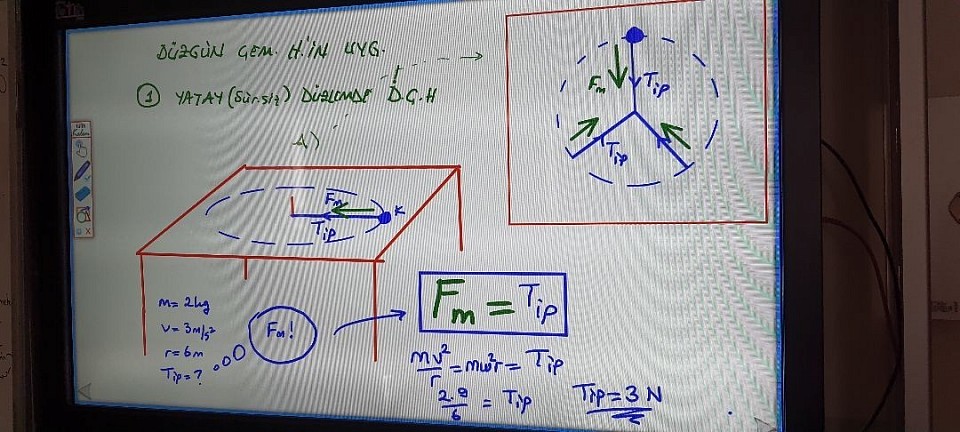 DÜZGÜN ÇEM. H.'İN UYG.
① YATAY (Sür.siz) DÜZLEMDE D.Ç.H
A)
Fm
Tip
K
Fm
Tip
Tip
m = 2kg
v = 3m/s²
r = 6m
Tip = ?
Fm!
Fm = Tip
mv²/r = mω²r = Tip
2.9/6 = Tip
Tip = 3 N